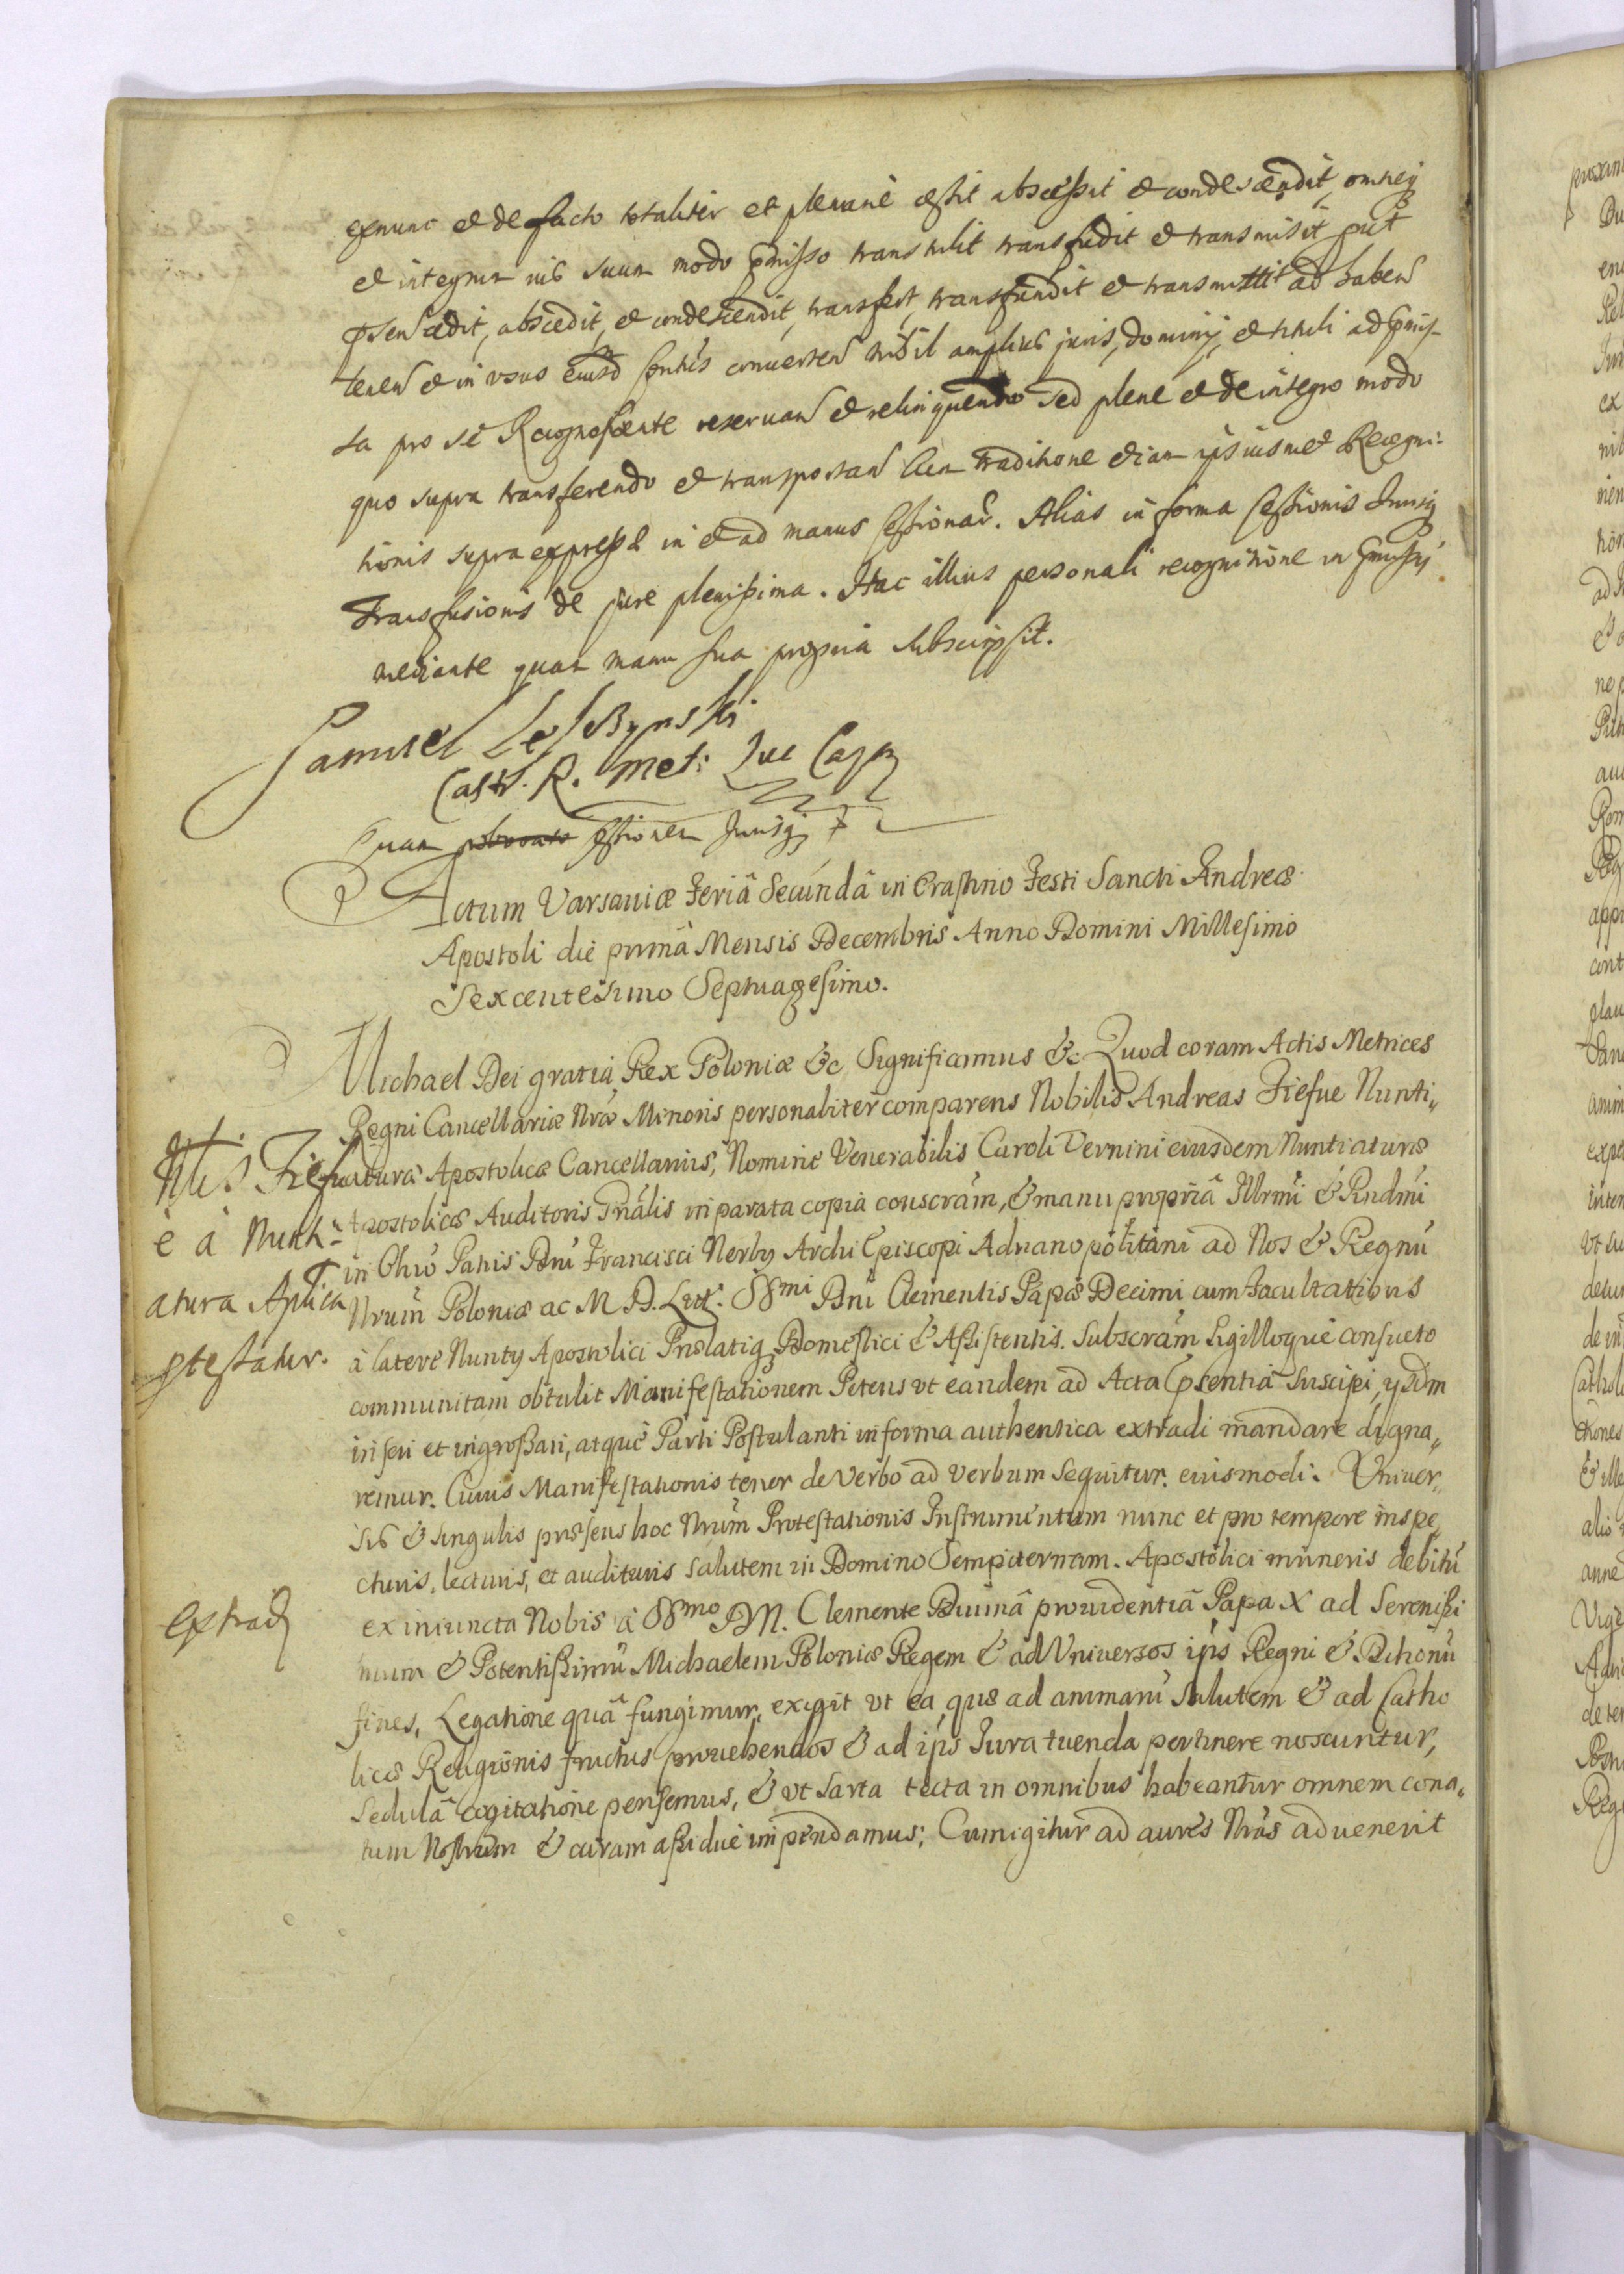 exnunc et de facto totaliter et plenariè cessit abscessit et condescendit, omneq
et integrum ius suum modo pmisso transtulit transfudit et transmisit put
psen cedit, abscedit, et condescendit, transfert, transfundit et transmittit ad haben
tenen et in vsus eiusd conuerten nihil amplius juris, dominij, et tituli ad pmis-
sa pro se Recognoscente reseruan et relinquendo sed plene et de integro modo
quo supra transferendo et transportan cum traditione etiam ipsiusmet Recogni-
tionis supra express in et ad manus Cessionar. Alias in forma Cessionis Jurisq
Transfusionis de jure plenissima. Hac illius personali recognitione in pmissis
mediante quam manu sua propria subscripsit.
Samuel
Castr. R.
quam Cessionem Jurisq
Actum Varsauiæ Feriâ Secundâ in Crastino Festi Sancti Andreæ
Apostoli die primâ Mensis Decembris Anno Domini Millesimo
Sexcentesimo Septuagesimo.
Michael Dei gratia Rex Poloniæ &c Significamus &c Quod coram Actis Metrices
Regni Cancellariæ Nræ Minoris personaliter comparens Nobilis Andreas Fiefue Nunti„
aturæ Apostolicæ Cancellarius, Nomine Venerabilis Caroli Vernini eiusdem Nuntiaturæ
Apostolicæ Auditoris Gnâlis in parata copia conscrám, & manu propriâ Illrmi & Rndmi
in Chrô Patris Dni Francisci Nerly Archi Episcopi Adrianopolitani ad Nos & Regnû
Nrum Poloniæ ac M. D. Litt. SSmi Dni Clementis Papæ Decimi cum Facultatibus
à latere Nuntÿ Apostolici Prælatiq Domestici & Assistentis. Subscrám Sigilloque consueto
communitam obtulit Manifestationem Petens vt eandem ad Acta psentia Suscipi, ysdm
inseri et ingrossari, atque Parti Postulanti in forma authentica extradi mandare digna„
remur. Cuius Manifestationis tenor de Verbo ad Verbum Sequitur. eiusmodi. Vniuer„
sis & singulis præsens hoc Nrum Protestationis Instrumentum nunc et pro tempore inspe„
cturis, lecturis, et audituris salutem in Domino Sempiternam. Apostolici muneris debitû
ex iniuncta Nobis à SSmo D. N. Clemente Diuinâ prouidentiâ Papa X ad Serenissi
mum & Potentissimû Michaelem Poloniæ Regem & ad Vniuersos ips Regni & Ditionû
fines, Legatione quâ fungimur, exigit vt ea, quæ ad animarû Salutem & ad Catho
licæ Religionis fructus prouehendos & ad ips Iura tuenda pertinere noscuntur,
Sedulâ cogitatione pensemus, & vt Sarta tecta in omnibus habeantur omnem cona„
tum Nostrum & curam assiduè impendamus; Cum igitur ad aures Nrâs aduenerit
Nlis Fiefu
e à Nunti
atura Aplica
ptestatur.
Extrad